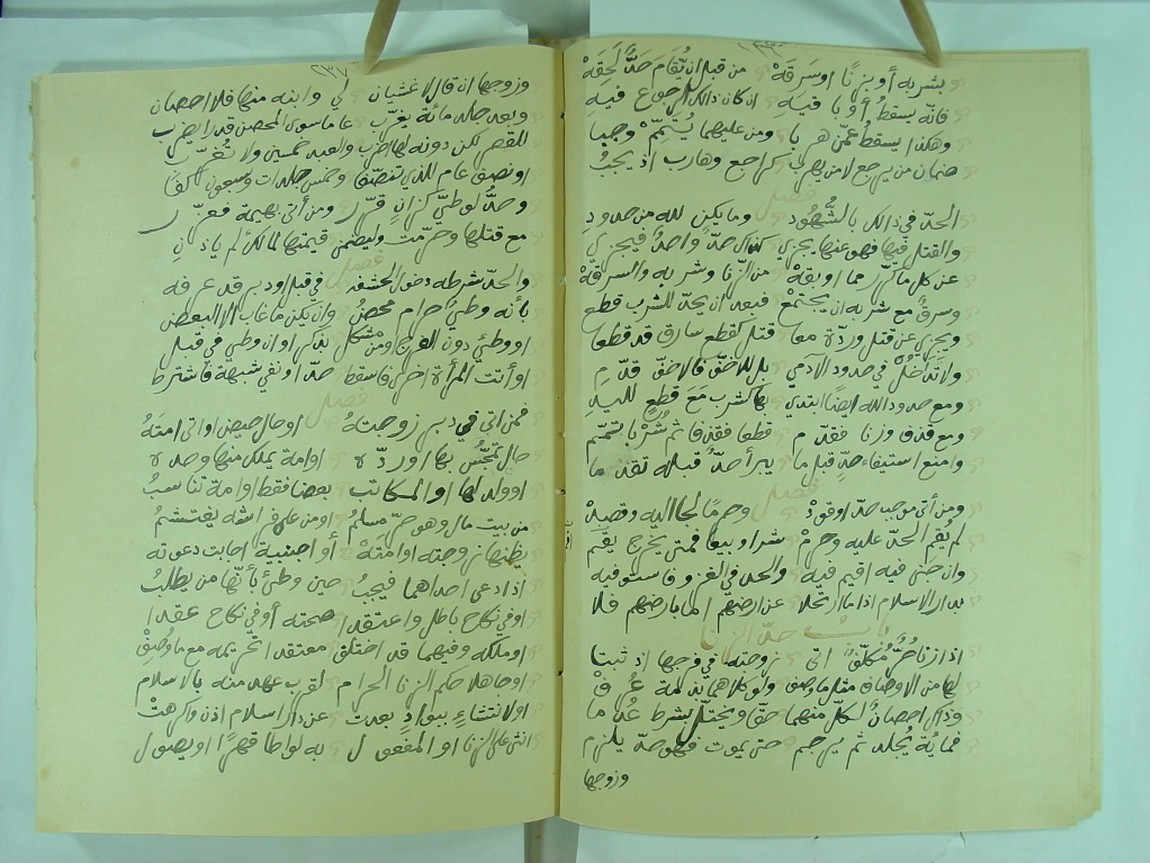 بشربه أو بزنًا او سرقة من قبل ان يُقَام حدٌّ لحقه
فانّه يسقطُ أو باقيه ان كان ذالك الرجوع فيه
وهكذا يسقطُ عمن هربا ومن عليهما يُتمّم وجبا
ضمان من يرجع لا من يهرب كراجع وهارب اذ يجبُ
فصل
الحدّ في ذالك بالشُّهُود وما يكن لله من حدودِ
والقتل فيها فهو عنها يجزي كذاك حدّ واحدٌ فيجزي
عن كل ما تكرّر مما اوبقهْ من الزّنا وشربه والسرقهْ
وسرقٌ مع شربه ان يجتمعْ فبعد ان يحدّ للشرب قطع
ويجزي عن قتل وردّة معا قتل كقطع سارق قد قطعا
ولا تداخلْ في حدود الآدمي بل للاخفّ فالاخفّ قدّم
ومع حدود الله ايضًا ابتدي بها كشرب مَعَ قطعٍ لليدِ
ومع قذف وزنا فقدّم قطعا فقذفا ثم شربا تمّم
وامنع استيفاء حدٍّ قبل ما يبرأ حدٌّ قبله تقدّما
فصل
ومن أتى موجب حدّ او قودْ وحرمًا لجا اليه وقصدْ
لم يُقم الحدّ عليه وحرمْ شرا وبيعا فمتى يخرج يقم
وان جنى فيه اقيم فيه والحد في الغزو فاستوفيه
بدار الاسلام اذا ما ارتحلا عن ارضهم اما بارضهم فلا
بابُ حدّ الزنا
اذا زنا حُرٌّ مُكلّفٌ اتى زوجته في فرجها اذ ثبتا
لها من الاوصاف مثل ما وصف ولو كلاهما بذمة عُرفْ
وذاك احصانٌ لكلّ منهما حقّا ويختلّ بشرط عُدما
فمائةً يُجلد ثم يرجم حتى يموت فهو حدّ يلزم
وزوجها
وزوجها ان قال لا غشيان لي وابنه منها فلا احصان
وبعد جلد مائة يغرّب عاما سوى المحصن قدرا يضرب
للقصر لكن دونه لها اضرب والعبد خمسين ولا تُغرّب
او نصف عام للذي تنصّفا وخمس جلدات وسبعون كفا
وحدُّ لوطيّ كزانٍ قرّر ومن أتى بهيمة فعزّر
مع قتلها وحرّمت وليضمن قيمتها لمالك لم ياذنِ
فصل
والحدّ شرطه دخول الحشفه في قبل او دبر قد عرفه
بأنه وطيُ حرام محضُ وان يكن ما غاب الا البعض
او وطئ دون الفرج او من مشكل بذكر او ان وطي في قبل
او أتت المرأة اخرى فاسقط حدّا ونفي شبهة فاشترط
فصل
فمن اتى في دبر زوجتهُ او حال حيض او اتى امتهُ
حال تمجّس بها او ردّه او امة يملك منها وحده
او ولد لها او المكاتب بعضا فقط او امة تناسبُ
من بيت مال وهو حرّ مسلمُ او من على فراشه يغتشمُ
يظنها زوجته او امتهْ أو اجنبية اجابت دعوته
اذا دعى احداهما فيجبُ حين وطئ بأنّها من يطلبُ
او في نكاح باطل واعتقدا صحته أو في نكاح عقدا
او ملكه وفيهما قد اختلف معتقدا تحريمه مع ما وُصِفْ
او جاهلا حكم الزنا الحرام لقرب عهد منه بالاسلام
او لانتشاءٍ ببوادٍ بعدت عن دار اسلام اذن واكرهتْ
انثى على الزنا او المفعول به لواطا قهرًا او بصول